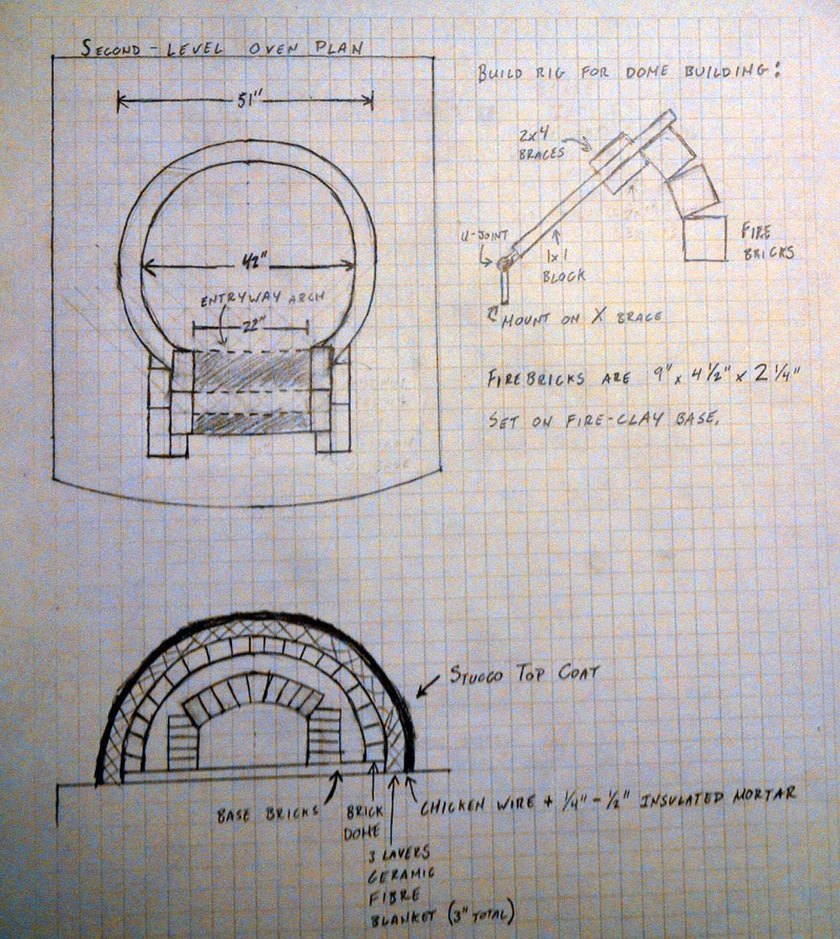 SECOND-LEVEL OVEN PLAN
51"
42"
ENTRYWAY ARCH
22"
BUILD RIG FOR DOME BUILDING:
2x4
BRACES
U-JOINT
1x1
BLOCK
FIRE
BRICKS
MOUNT ON X BRACE
FIREBRICKS ARE 9" x 4 1/2" x 2 1/4"
SET ON FIRE-CLAY BASE.
STUCCO TOP COAT
BASE BRICKS
BRICK
DOME
CHICKEN WIRE + 1/4" - 1/2" INSULATED MORTAR
3 LAYERS
CERAMIC
FIBRE
BLANKET (3" TOTAL)